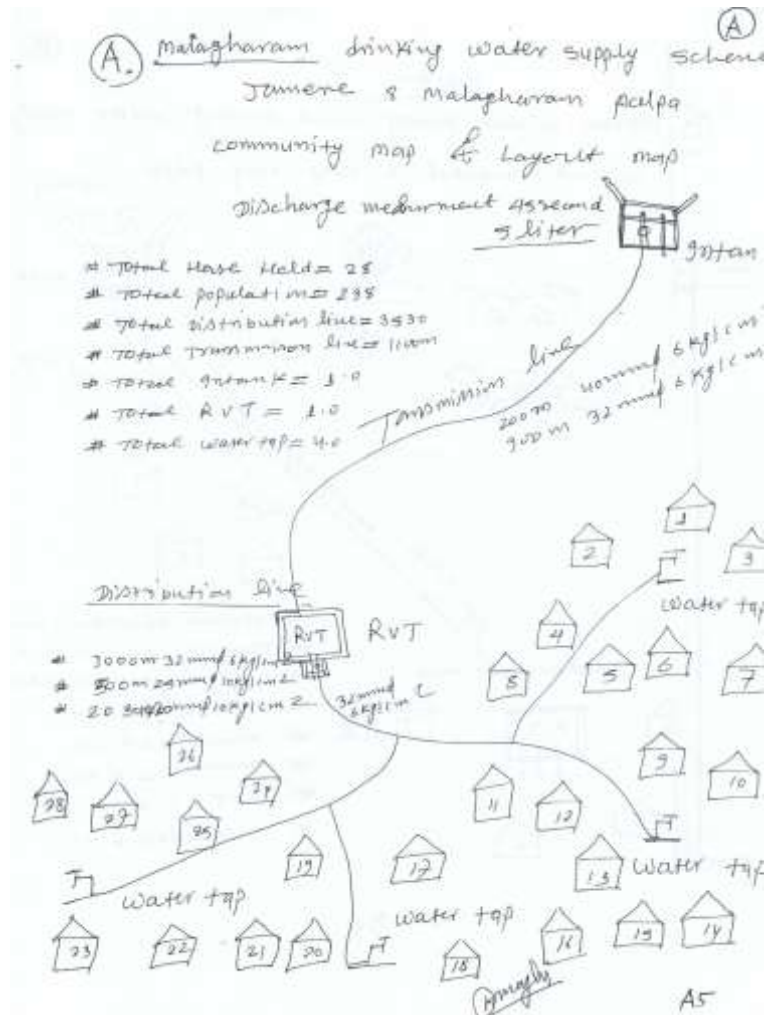 A
A. Malagharam drinking water supply scheme
Jamere 8 Malagharam
community map & Layout map
Discharge
5 liter
# Total House Hold = 28
# Total population = 238
# Total Distribution line = 3530
# Total Transmission line = 1100m
# Total Intank = 1.0
# Total RVT = 1.0
# Total water tap = 4.0
Intan
Transmission line
200m 40mmφ 6kg/cm
900m 32mmφ 6kg/cm
Distribution line
RVT
RVT
# 3000m 32mmφ 6kg/cm2
# 500m 25mmφ 10kg/cm2
# 20mmφ 10kg/cm2
32mmφ
6kg/cm2
1
2
3
T
water tap
4
8
5
6
7
26
28
27
25
24
9
10
11
12
T
13
water tap
19
17
T
water tap
water tap
23
22
21
20
T
18
16
15
14
A5